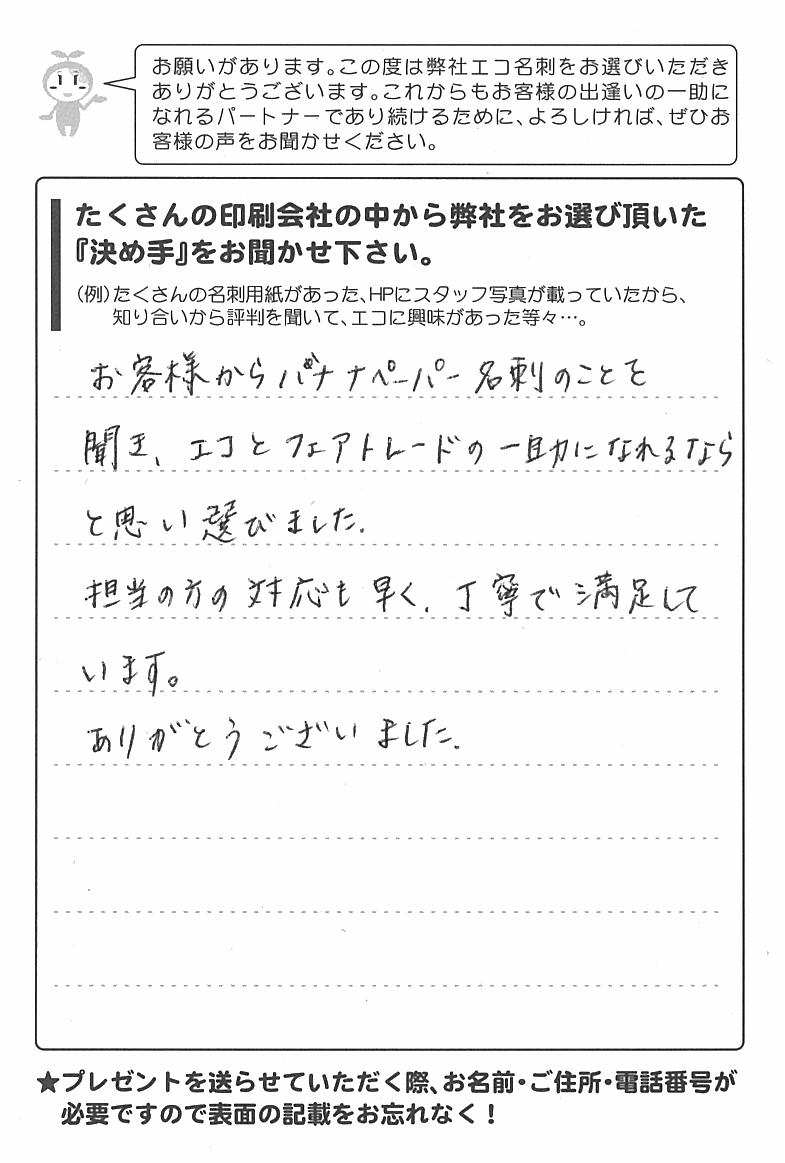 お願いがあります。この度は弊社エコ名刺をお選びいただき
ありがとうございます。これからもお客様の出逢いの一助に
なれるパートナーであり続けるために、よろしければ、ぜひお
客様の声をお聞かせください。
たくさんの印刷会社の中から弊社をお選び頂いた
『決め手』をお聞かせ下さい。
(例)たくさんの名刺用紙があった、HPにスタッフ写真が載っていたから、
知り合いから評判を聞いて、エコに興味があった等々…。
お客様からバナナペーパー名刺のことを
聞き、エコとフェアトレードの一助になれるなら
と思い選びました.
担当の方の対応も早く、丁寧で満足して
います。
ありがとうございました.
★プレゼントを送らせていただく際、お名前・ご住所・電話番号が
必要ですので表面の記載をお忘れなく！